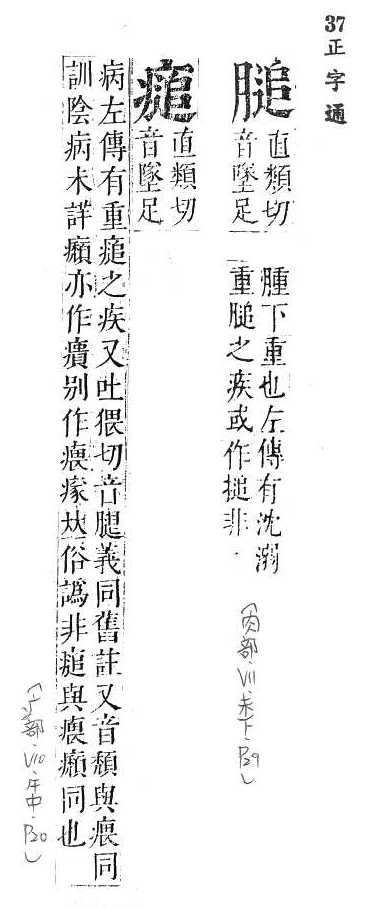 37 正字通
膇 直類切
音墜足
腫下重也左傳有沈溺
重膇之疾或作搥非.
(肉部、V11、未下、P29)
直類切
音墜足
病左傳有重之疾又吐猥切音腿義同舊註又音頹與同
訓陰病未詳亦作㿉別作俗譌非與同也
(疒部、V10、午中、P20)